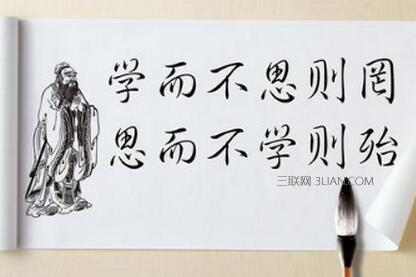 学而不思则罔
思而不学则殆
三联网 3LIAN.COM